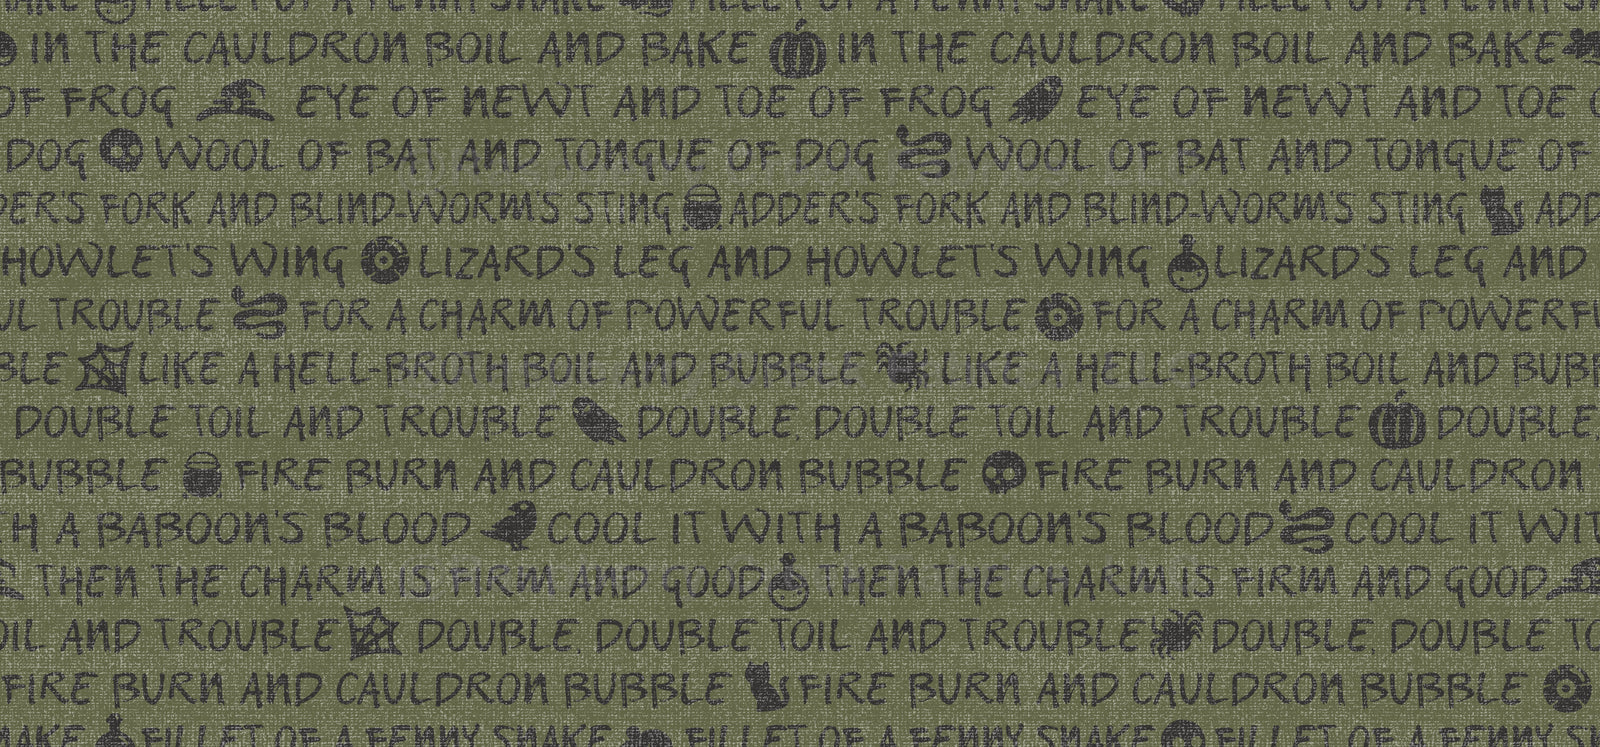 SNAKE FILLET OF A FENNY SNAKE FILLET OF A FENNY SNAKE
IN THE CAULDRON BOIL AND BAKE IN THE CAULDRON BOIL AND BAKE
OF FROG EYE OF NEWT AND TOE OF FROG EYE OF NEWT AND TOE O
DOG WOOL OF BAT AND TONGUE OF DOG WOOL OF BAT AND TONGUE OF
DER'S FORK AND BLIND-WORM'S STING ADDER'S FORK AND BLIND-WORM'S STING ADD
HOWLET'S WING LIZARD'S LEG AND HOWLET'S WING LIZARD'S LEG AND
UL TROUBLE FOR A CHARM OF POWERFUL TROUBLE FOR A CHARM OF POWERFU
BLE LIKE A HELL-BROTH BOIL AND BUBBLE LIKE A HELL-BROTH BOIL AND BUBB
DOUBLE TOIL AND TROUBLE DOUBLE, DOUBLE TOIL AND TROUBLE DOUBLE,
BUBBLE FIRE BURN AND CAULDRON BUBBLE FIRE BURN AND CAULDRON
TH A BABOON'S BLOOD COOL IT WITH A BABOON'S BLOOD COOL IT WIT
THEN THE CHARM IS FIRM AND GOOD THEN THE CHARM IS FIRM AND GOOD
OIL AND TROUBLE DOUBLE, DOUBLE TOIL AND TROUBLE DOUBLE, DOUBLE TO
FIRE BURN AND CAULDRON BUBBLE FIRE BURN AND CAULDRON BUBBLE
NAKE FILLET OF A FENNY SNAKE FILLET OF A FENNY SN